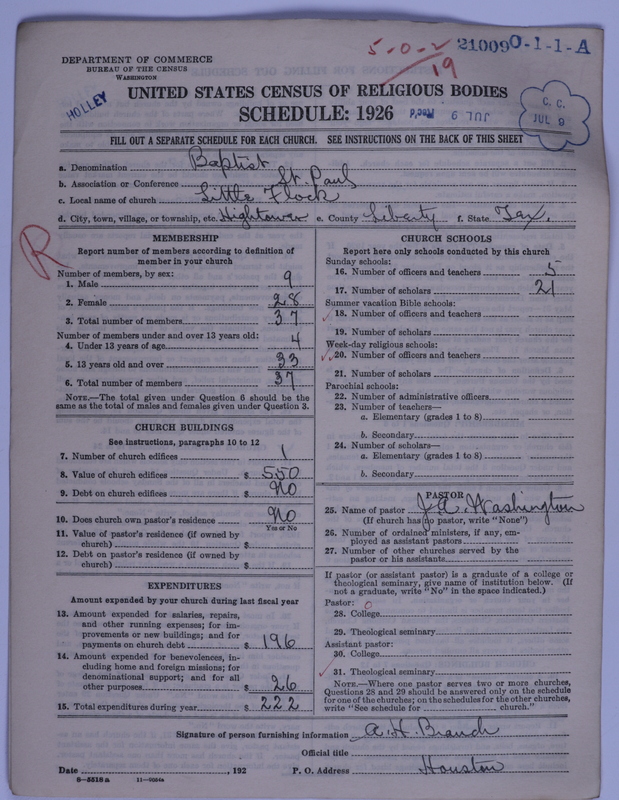 5-0-2
19
210090-1-1-A
DEPARTMENT OF COMMERCE
BUREAU OF THE CENSUS
WASHINGTON
HOLLEY
UNITED STATES CENSUS OF RELIGIOUS BODIES
SCHEDULE: 1926
Rec'd JUL 9
C. C.
JUL 9
FILL OUT A SEPARATE SCHEDULE FOR EACH CHURCH. SEE INSTRUCTIONS ON THE BACK OF THIS SHEET
a. Denomination Baptist
b. Association or Conference St. Paul
c. Local name of church Little Flock
d. City, town, village, or township, etc. Hightower e. County Liberty f. State Tex.
R
MEMBERSHIP
Report number of members according to definition of
member in your church
Number of members, by sex:
1. Male 9
2. Female 28
3. Total number of members 37
Number of members under and over 13 years old:
4. Under 13 years of age 4
5. 13 years old and over 33
6. Total number of members 37
NOTE.—The total given under Question 6 should be the
same as the total of males and females given under Question 3.
CHURCH BUILDINGS
See instructions, paragraphs 10 to 12
7. Number of church edifices 1
8. Value of church edifices $ 550
9. Debt on church edifices $ No
10. Does church own pastor's residence No
Yes or No
11. Value of pastor's residence (if owned by
church) $
12. Debt on pastor's residence (if owned by
church) $
EXPENDITURES
Amount expended by your church during last fiscal year
13. Amount expended for salaries, repairs,
and other running expenses; for im-
provements or new buildings; and for
payments on church debt $ 196
14. Amount expended for benevolences, in-
cluding home and foreign missions; for
denominational support; and for all
other purposes $ 26
15. Total expenditures during year $ 222
CHURCH SCHOOLS
Report here only schools conducted by this church
Sunday schools:
16. Number of officers and teachers 5
17. Number of scholars 21
Summer vacation Bible schools:
18. Number of officers and teachers
19. Number of scholars
Week-day religious schools:
20. Number of officers and teachers
21. Number of scholars
Parochial schools:
22. Number of administrative officers
23. Number of teachers—
a. Elementary (grades 1 to 8)
b. Secondary
24. Number of scholars—
a. Elementary (grades 1 to 8)
b. Secondary
PASTOR
25. Name of pastor J. A. Washington
(If church has no pastor, write "None")
26. Number of ordained ministers, if any, em-
ployed as assistant pastors
27. Number of other churches served by the
pastor or his assistants
If pastor (or assistant pastor) is a graduate of a college or
theological seminary, give name of institution below. (If
not a graduate, write "No" in the space indicated.)
Pastor: 0
28. College
29. Theological seminary
Assistant pastor:
30. College
31. Theological seminary
NOTE.—Where one pastor serves two or more churches,
Questions 28 and 29 should be answered only on the schedule
for one of the churches; on the schedules for the other churches,
write "See schedule for church."
Signature of person furnishing information A. H. Branch
Official title
Date , 192 P. O. Address Houston
8-5518 a 11-9094a